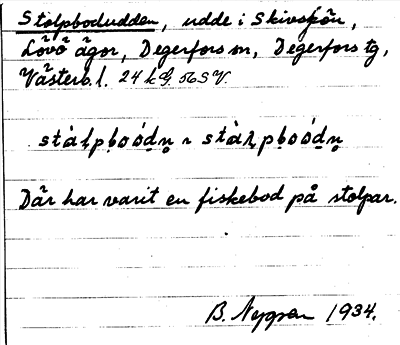 Stolpbodudden, udde i Skivsjön,
Lövö ägor, Degerfors sn, Degerfors tg,
Västerb. l. 24 k G nSV.
stàlpboódn ~ stàlpboódn
Där har varit en fiskebod på stolpar.
B. Nygren 1934.